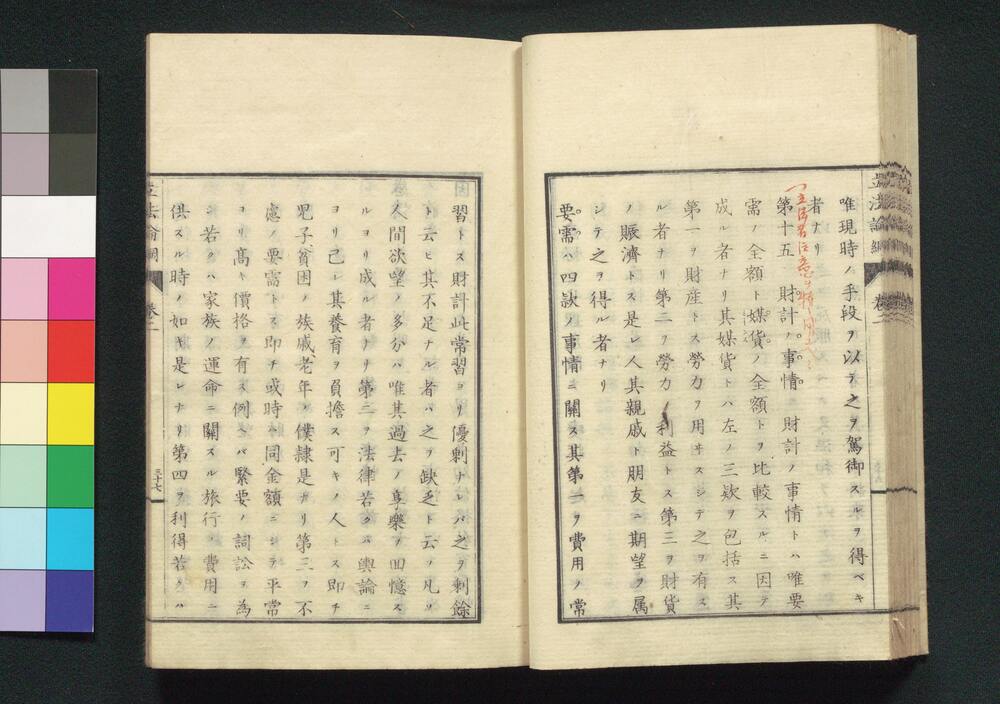 立法論綱 卷二
唯現時ノ手段ヲ以テ之ヲ駕御スルヲ得ベキ
者ナリ
第十五 財計ノ事情 財計ノ事情トハ唯要
需ノ全額ト媒貨ノ全額トヲ比較スルニ因テ
成ル者ナリ其媒貨トハ左ノ三欵ヲ包括ス其
第一ヲ財産トス勞力ヲ用ヰスシテ之ヲ有ス
ル者ナリ第二ヲ勞力ノ利益トス第三ヲ財貨
ノ賑濟トス是レ人其親戚ト朋友ニ期望ヲ属
シテ之ヲ得ル者ナリ
要需ハ四欵ノ事情ニ關ス其第一ヲ費用ノ常
習トス財計此常習ヨリ優剰ナレバ之ヲ剰餘
ト云ヒ其不足ナル者ハ之ヲ缺乏ト云フ凡ソ
人間欲望ノ多分ハ唯其過去ノ享樂ヲ回憶ス
ルヨリ成ル者ナリ第二ヲ法律若クハ輿論ニ
ヨリ己レ其養育ヲ負擔ス可キノ人トス即チ
兒子貧困ノ族戚老年ノ僕隷是ナリ第三ヲ不
慮ノ要需トス即チ或時ハ同金額ニシテ平常
ヨリ髙キ價格ヲ有ス例ヘバ緊要ノ詞訟ヲ為
シ若クハ家族ノ運命ニ關スル旅行ノ費用ニ
供スル時ノ如キ是レナリ第四ヲ利得若クハ
立法論綱 卷二 三十七